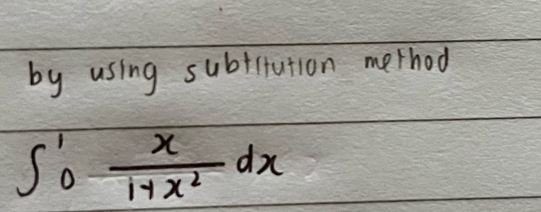 by using subtitution method
∫₀¹ x/(1+x²) dx